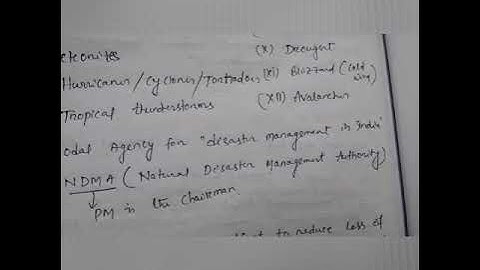 (X) Drought
Hurricanes/Cyclones/Tontadoes (XI) Blizzard (cold
Tropical thunderstorms (XII) Avalanches
odal Agency for "desaster management in India"
NDMA (Natural Desaster Management Authority)
PM is the Chairman
to reduce loss of